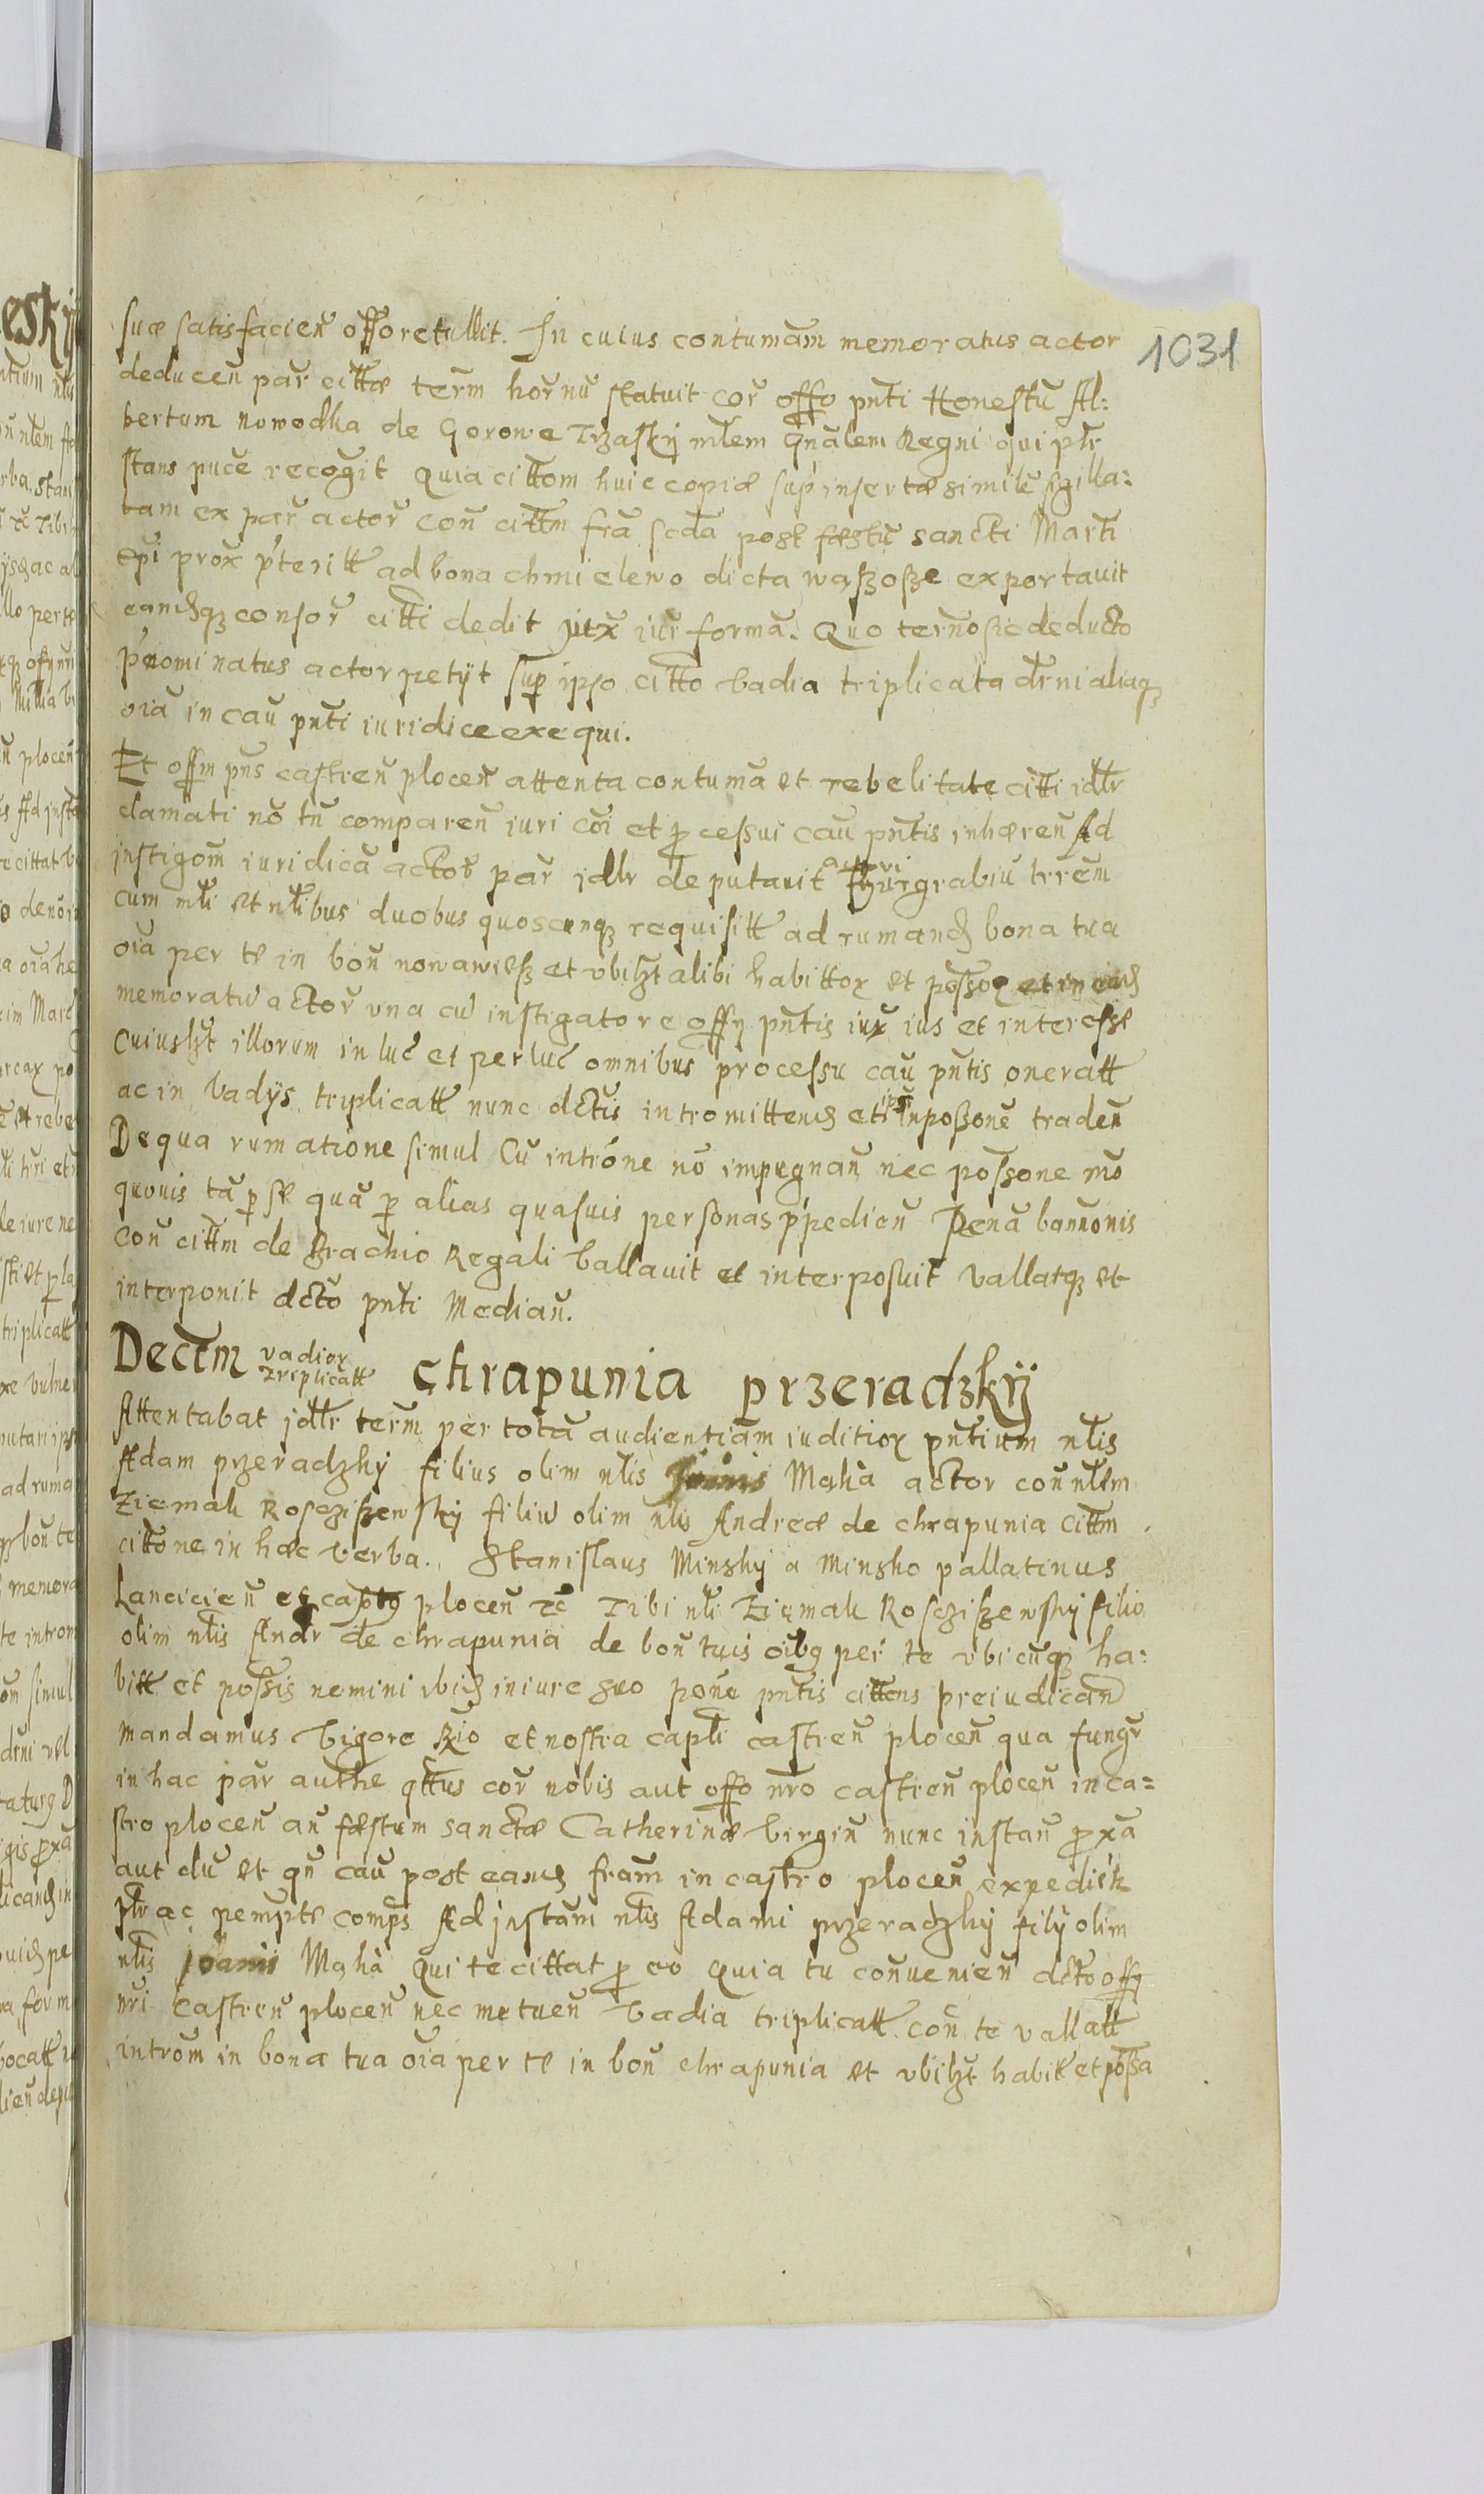 1031
suæ satisfacien̄ offo retullit. In cuius contumām memoratus actor
deducen̄ par̄ cittæ term̄ hor̄nū statuit cor̄ offo pn̄ti Honestū Al:
bertum nowodka de Gorowe Trzasky mlem Gn̄alem Regni qui p̄tr
stans puce recogit Quia cittom huic copiæ sup̄ insertæ similē sgilla:
tam ex par̄ actor̄ con̄ cittm̄ fr̄a scda post fæstū sancti Marti
Ep̄i prox p̄teritt ad bona chmielewo dicta waszosze exportauit
eandqz consor̄ citti dedit jutx iur̄ formā. Quo termo sic deducto
p̄nominatus actor petijt sup̄ ipso citto vadia triplicata dr̄ni aliaqz
oīa in cau pn̄ti iuridice exequi.
Et offm pn̄s castren̄ plocen̄ attenta contumā et rebelitate citti idtr
clamati nō tn̄ comparen̄ iuri cōi et p cessui cau pn̄tis inhæren̄ Ad
instigōm iuridicā actor̄ par̄ jdtr deputauit actori Burgrabiū trr̄em
cum mli et nl̄ibus duobus quoscunqz requisitt ad rumand bona tua
oīa per te in bon̄ nowawiesz et vbilzt alibi habittor et posšor et in eisd
memoratū actor̄ vna cū instigatore offy pn̄tis iux ius et interesse
Cuiuslzt illorum in luc̄ et per luc̄ omnibus processu cau pn̄tis oneratt
ac in vadijs triplicatt nunc dctis intromittend et ipsi in poszone traden̄
De qua rumatiōne simul Cū intrōne nō impugnan̄ nec possone mō
quouis tā p se quā p alias quasuis personas p̄pedien̄ Penā bannonis
Con̄ cittm de Brachio Regali vallauit et interposuit vallatqz et
interponit dcto pn̄ti Median̄.
Dectm vadior Triplicatt chrapunia przeradzkij
Attentabat jdtr term̄ per totā audientiām iuditior pn̄tium nlis
Adam przeradzky filius olim nlis Joānis Mąka actor con̄ nlem
Ziemak Roscziszewsky filiū olim nlis Andreæ de chrapunia cittm
cittōne in hæc verba. Stanislaus Minsky a Minsko pallatinus
Lancicien̄ et capto plocen̄ zc Tibi nli Ziemak Rosczizewsky filio
olim nlis Andr̄ de chrapunia de bon̄ tuis oibg per te vbicuqz ha:
bitt et possis nemini ibid in iure suo pone pn̄tis cittens preiudican̄
mandamus vigore Rio et nostra capti castren̄ plocen̄ qua fungr̄
in hac par̄ authe qttus cor̄ nobis aut offo nr̄o castren̄ plocen̄ in ca=
stro plocen̄ an̄ fæstum sanctæ Catherinæ virgin̄ nunc instan̄ p̄xā
aut dū et qn̄ cau post eand fram̄ in castro plocen̄ expedietr
ptr ac pempte comp̄s Ad jnstām nlis Adami przeradzky filij olim
nlis joānis Mąkà qui te cittat p eo Quia tu conuenien̄ dcto offy
nr̄i castren̄ plocen̄ nec metuen̄ vadia triplicatt con̄ te vallatt
intrōm in bona tua oīa per te in bon̄ chrapunia et vbilzt habitt et poszsa